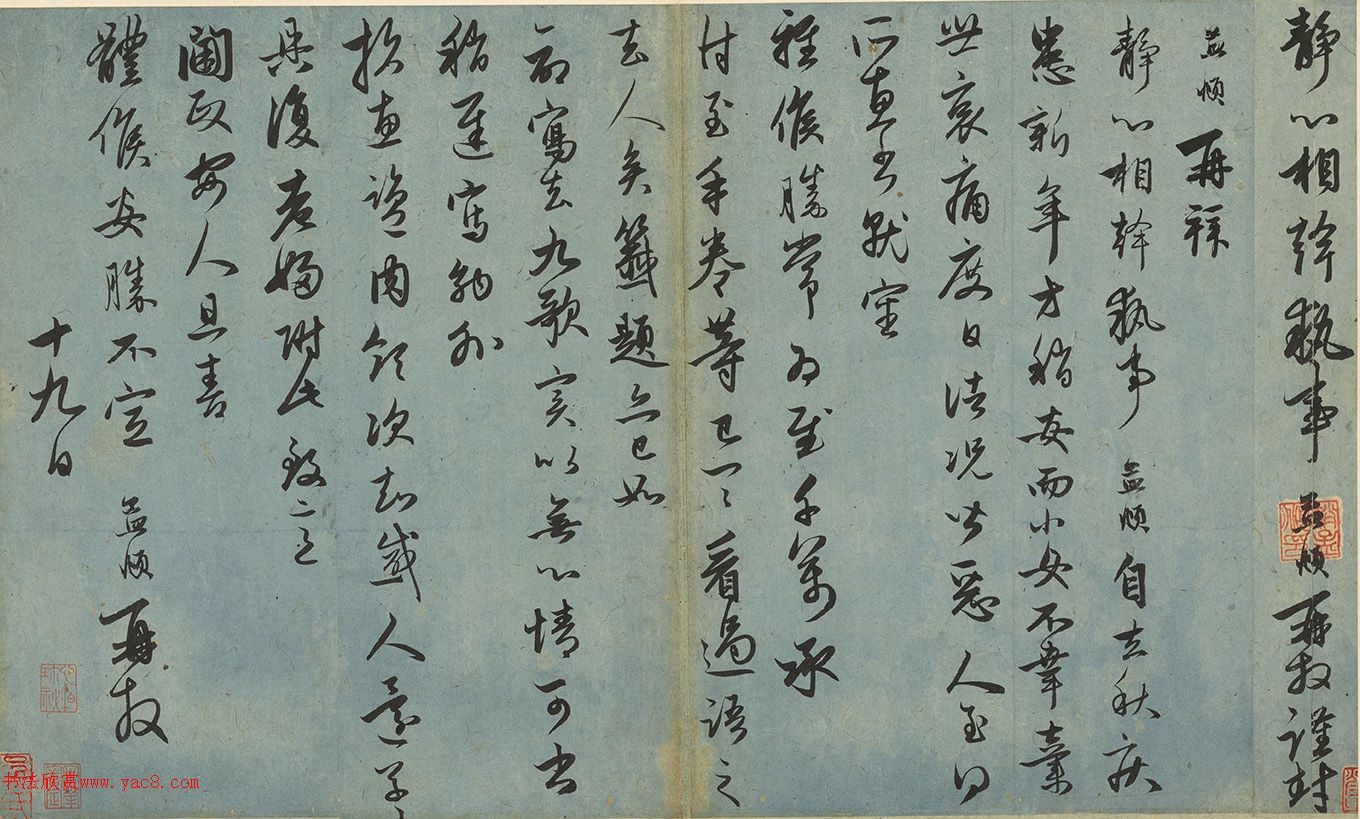 靜心相幹執事 孟頫再拜謹封
孟頫再拜
靜心相幹執事孟頫自去秋疾
患新年方稍安而小女不幸棄
世哀痛度日情況甚惡人至得
所惠書就審
雅候勝常為慰千萬承
付至手卷等已一一看過語之
去人矣籤題亦已如
命寫去九歌實以無心情可書
稍遲寫納外
損惠肉領次知感人還草草
具復老婦附此致意
閫政安人且善
體候安勝不宣 孟頫再拜
十九日
书法欣赏www.yac8.com